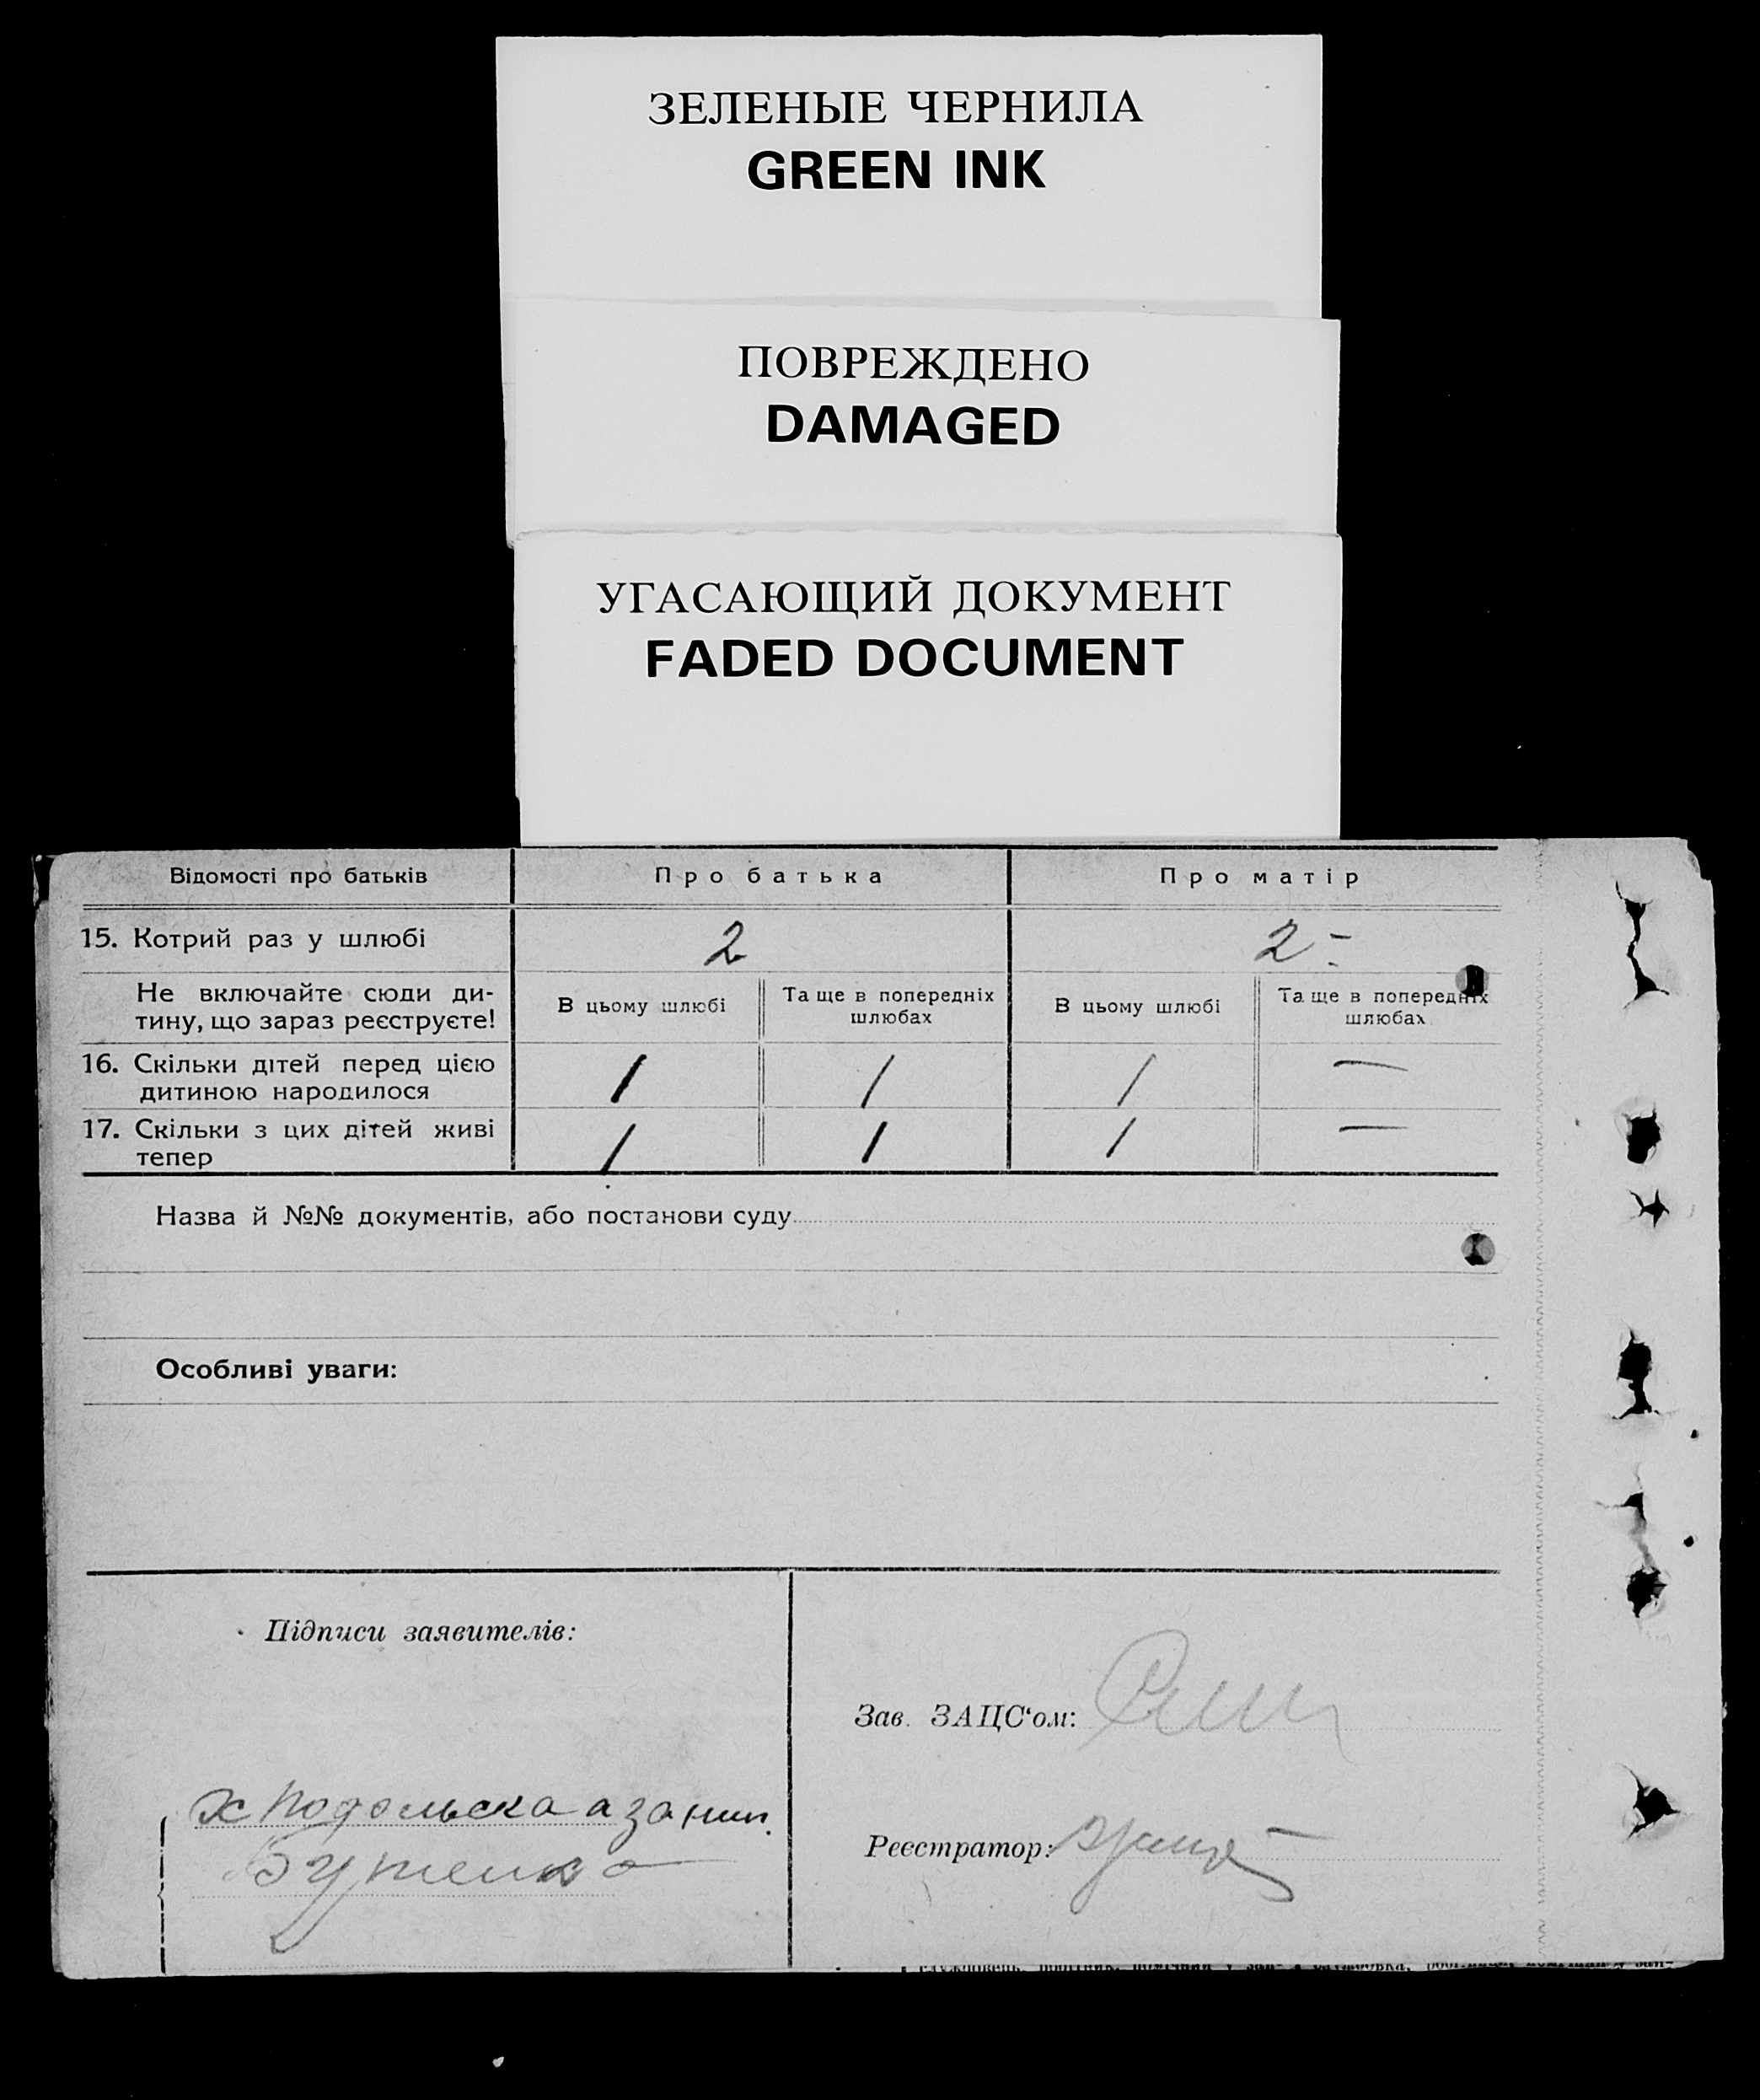 ЗЕЛЕНЫЕ ЧЕРНИЛА
GREEN INK
ПОВРЕЖДЕНО
DAMAGED
УГАСАЮЩИЙ ДОКУМЕНТ
FADED DOCUMENT
Відомості про батьків Про батька Про матір
15. Котрий раз у шлюбі 2 2-
Не включайте сюди ди-
тину, що зараз реєструєте!
В цьому шлюбі
Та ще в попередніх
шлюбах
В цьому шлюбі
Та ще в попередніх
шлюбах
16. Скільки дітей перед цією
дитиною народилося
1 1 1 —
17. Скільки з цих дітей живі
тепер
1 1 1 —
Назва й №№ документів, або постанови суду
Особливі уваги:
Підписи заявителів:
Подольска а
Бутенко
Зав. ЗАЦС'ом:
Реєстратор: